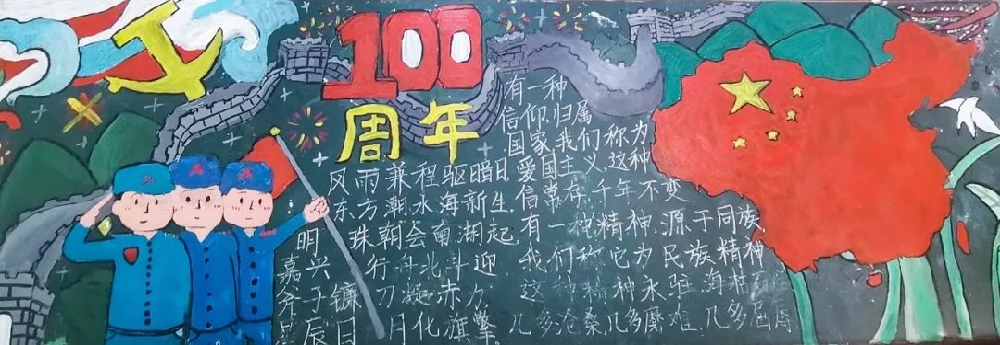 100
周年
风雨兼程驱暗日
东方潮水海新生
明珠朝会南湖起
嘉兴行舟北斗迎
斧子镰刀凝赤力
星辰日月化旗擎
有一种
信仰,归属
国家,我们称为
爱国主义,这种
信常存,千年不变
有一种精神,源于同族,
我们称它为民族精神
这种精神永驻,海枯
几多沧桑,几多磨难,几多屈辱